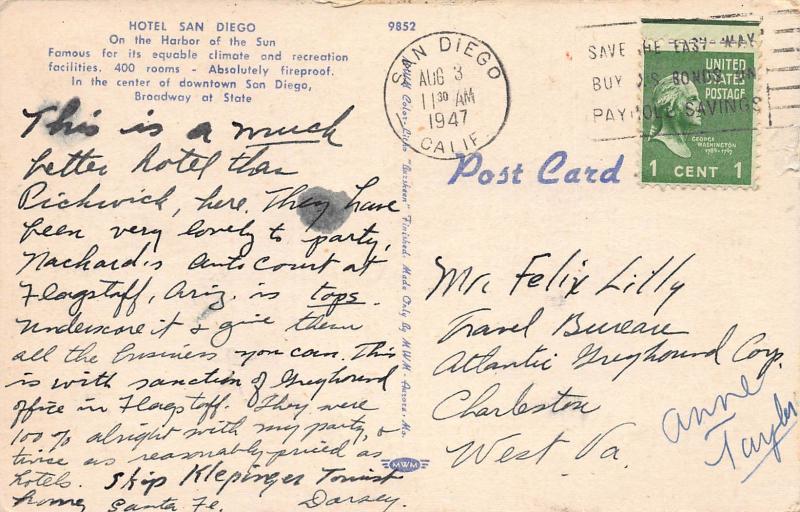 HOTEL SAN DIEGO
On the Harbor of the Sun
Famous for its equable climate and recreation
facilities. 400 rooms - Absolutely fireproof.
In the center of downtown San Diego,
Broadway at State
This is a much
better hotel than
Pickwick, here. They have
been very lovely to party,
Nackard's Auto Court at
Flagstaff, Ariz. is tops.
Underscore it & give them
all the business you can. This
is with sanction of Greyhound
office in Flagstaff. They were
100% alright with my party, &
twice as reasonably priced as
hotels. Skip Klepinger Tourist
home, Santa Fe. Dorsey.
9852
MWM Color-Litho "Aursheen" Finished. Made Only By MWM, Aurora, Mo.
MWM
SAN DIEGO
AUG 3
11 30 AM
1947
CALIF.
SAVE THE EASY WAY
BUY US BONDS ON
PAYROLL SAVINGS
UNITED
STATES
POSTAGE
GEORGE
WASHINGTON
1789-1797
1 CENT 1
Post Card
Mr. Felix Lilly
Travel Bureau
Atlantic Greyhound Corp.
Charleston
West Va.
Anne
Taylor